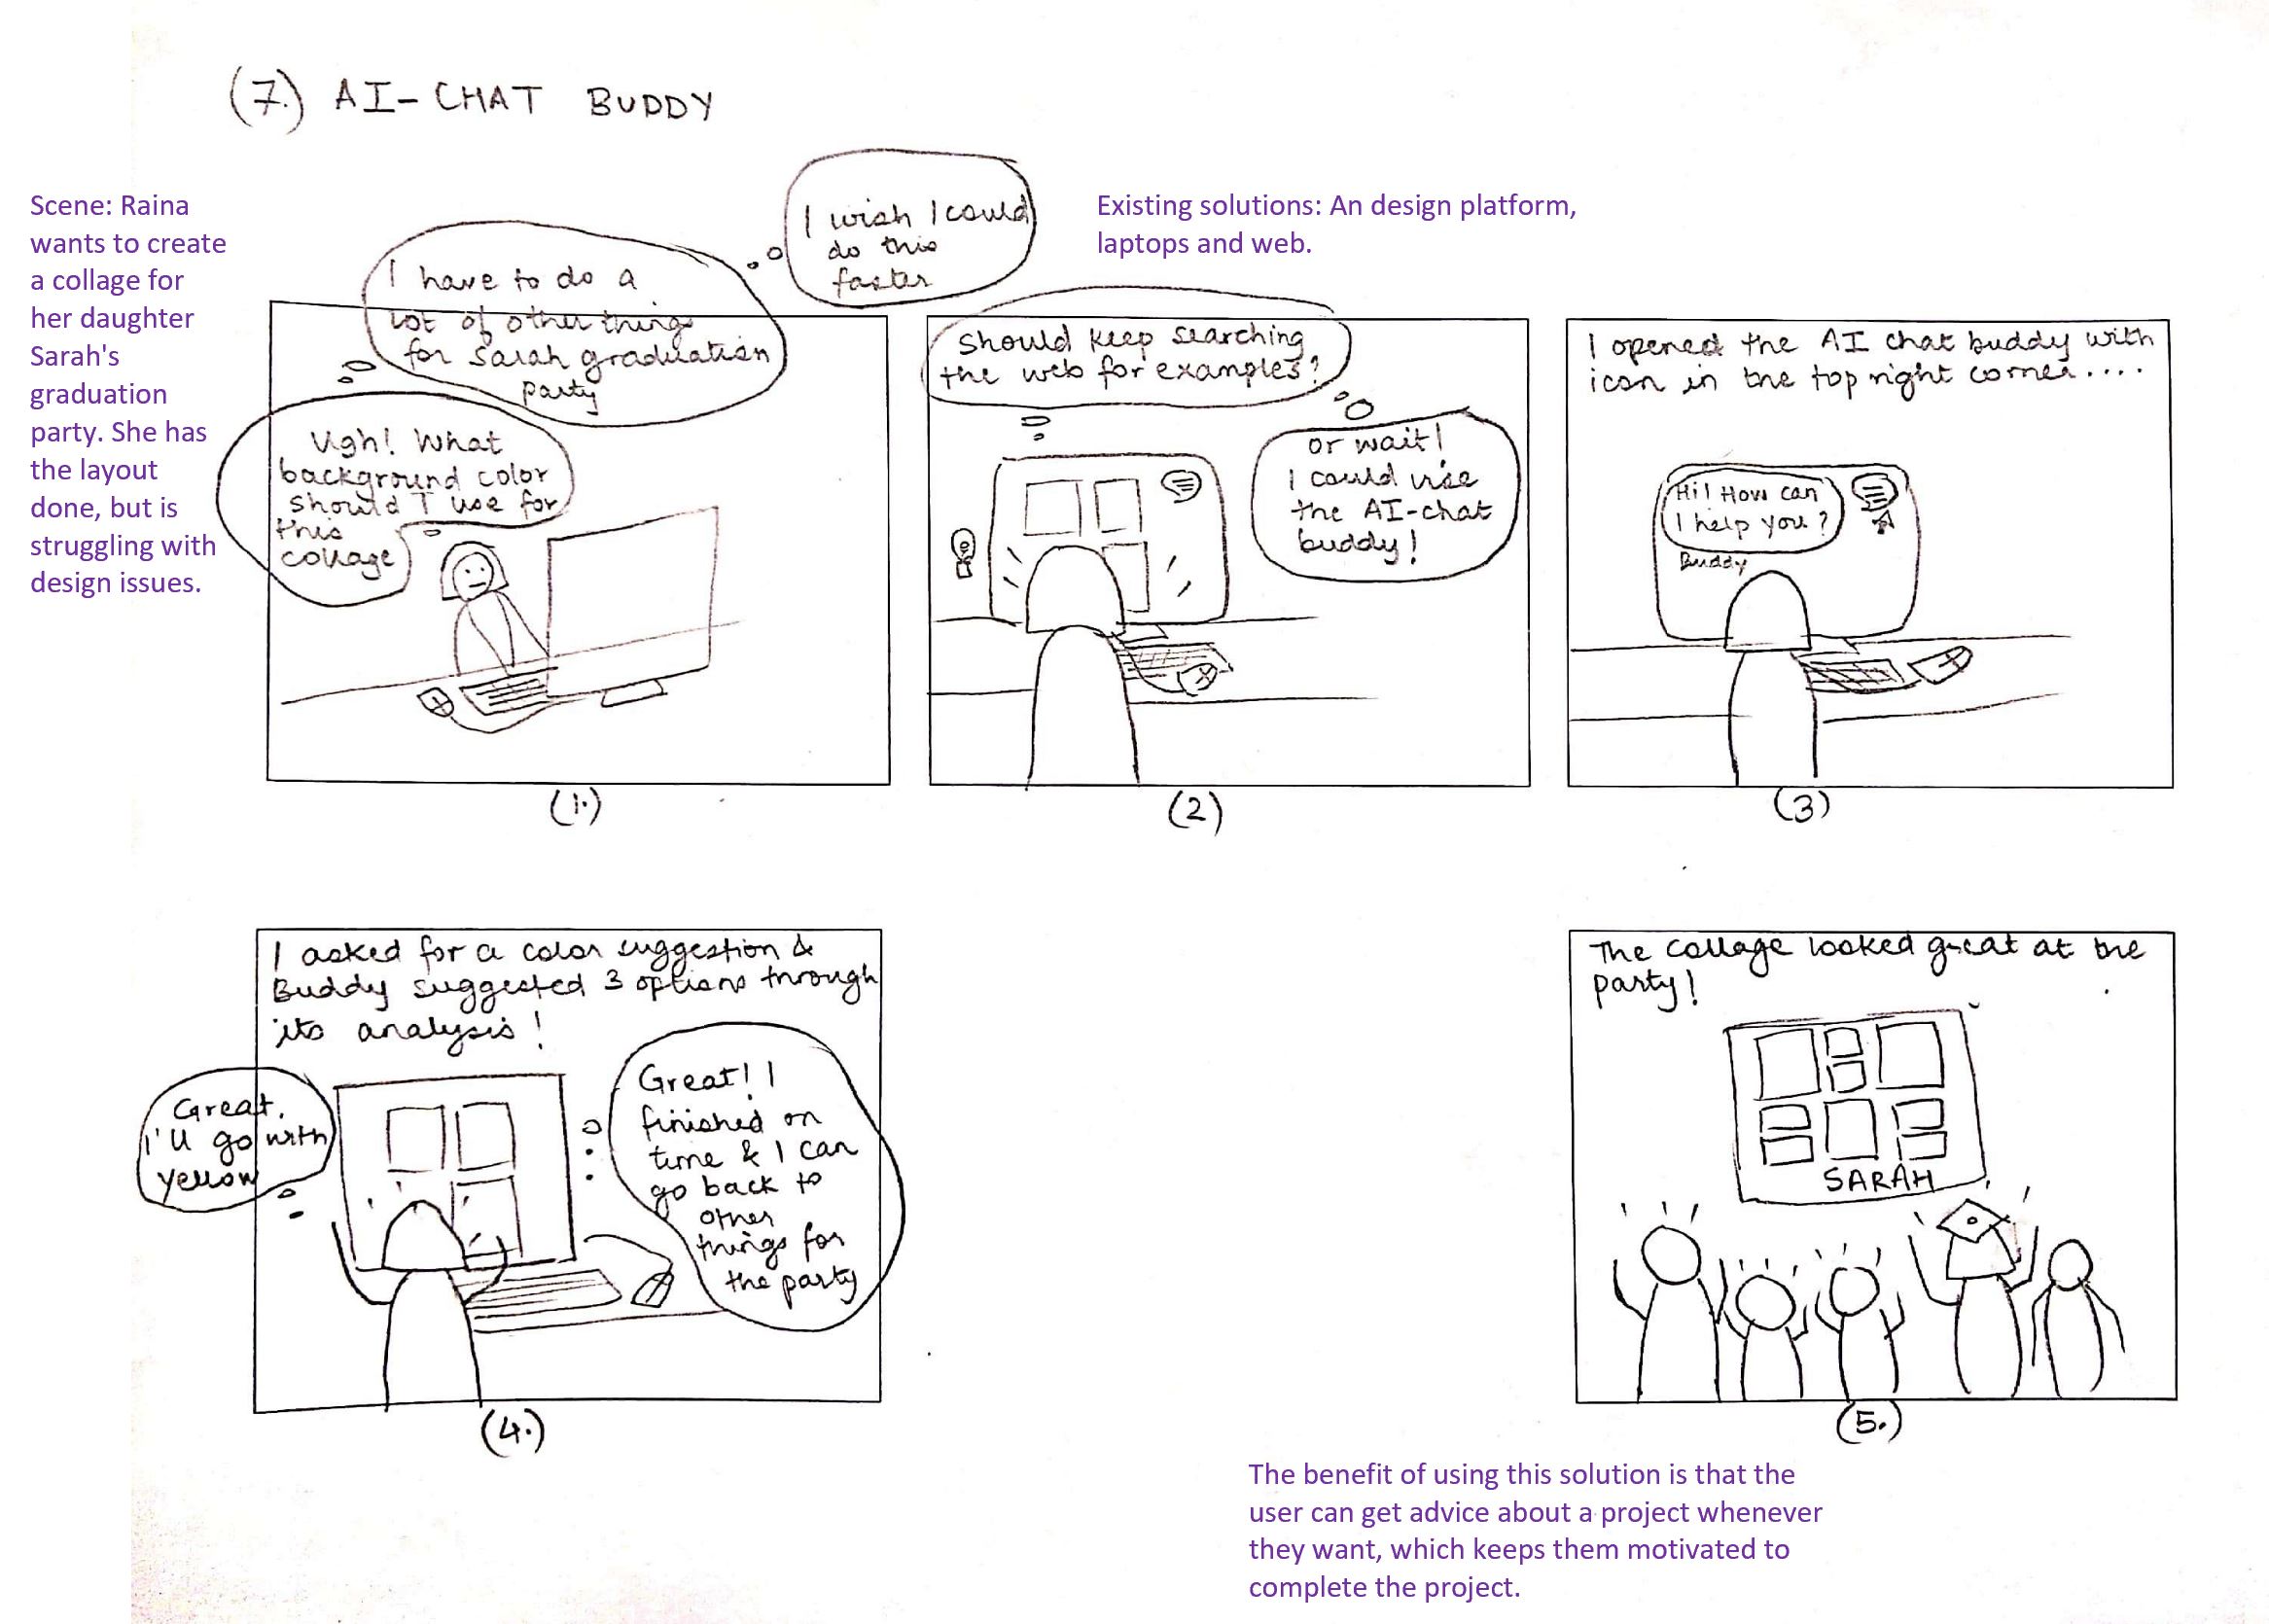 (7.) AI-CHAT BUDDY
Scene: Raina
wants to create
a collage for
her daughter
Sarah's
graduation
party. She has
the layout
done, but is
struggling with
design issues.
Existing solutions: An design platform,
laptops and web.
Ugh! What
background color
should I use for
this
collage
I have to do a
lot of other things
for Sarah graduation
party
I wish I could
do this
faster
(1.)
Should keep searching
the web for examples?
or wait!
I could use
the AI-chat
buddy!
(2)
I opened the AI chat buddy with
icon in the top right corner....
Hi! How can
I help you?
Buddy
(3)
I asked for a color suggestion &
Buddy suggested 3 options through
its analysis!
Great,
I'll go with
yellow
Great! I
finished on
time & I can
go back to
other
things for
the party
(4.)
The collage looked great at the
party!
SARAH
(5.)
The benefit of using this solution is that the
user can get advice about a project whenever
they want, which keeps them motivated to
complete the project.